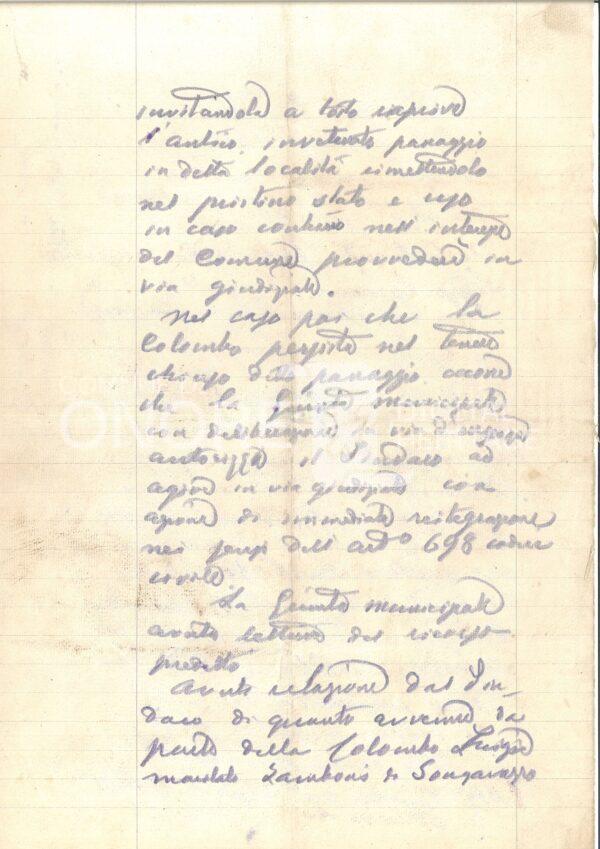 invitandola a tosto riaprire
l'antico, inveterato passaggio
in detta località rimettendolo
nel pristino stato e uso
in caso contrario nell'interesse
del Comune provvederà in
via giudiziale.
Nel caso poi che la
Colombo persista nel tenere
chiuso detto passaggio occorre
che la Giunta municipale
con deliberazione in via d'urgenza
autorizzi il Sindaco ad
agire in via giudiziale con
azione di immediata reintegrazione
nei sensi dell'arto 698 codice
civile
La Giunta municipale
avuta lettura del ricorso
predetto
Avuta relazione dal Sin-
daco di quanto avvenne da
parte della Colombo Luigia
maritata Zamboni di